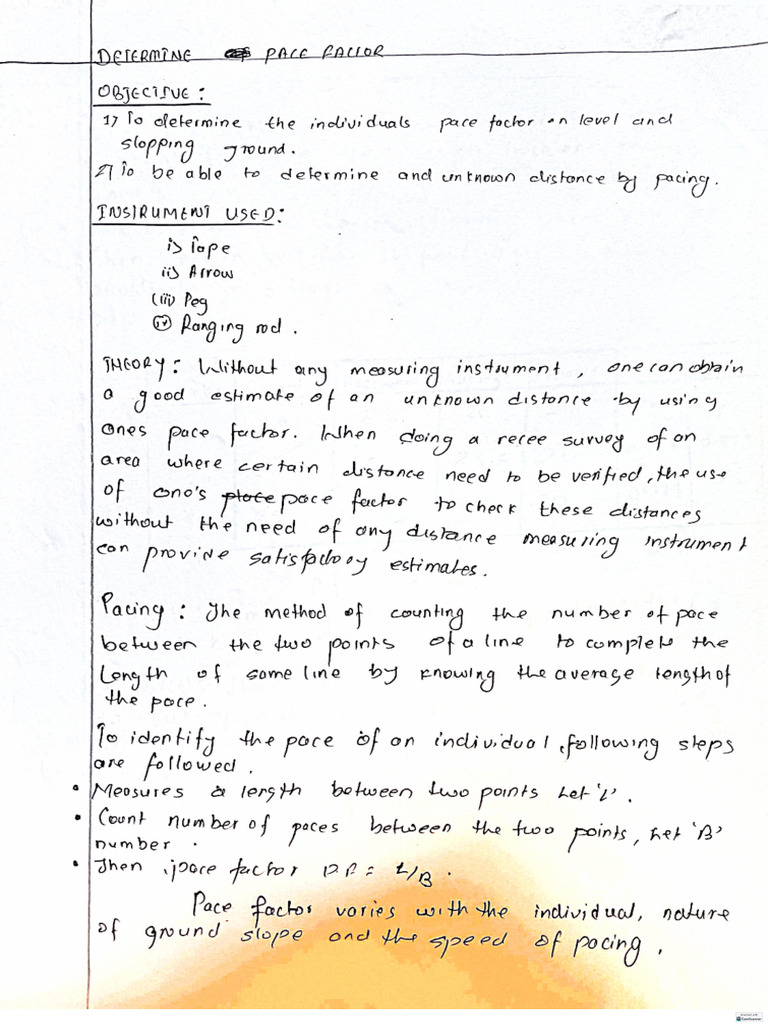 DETERMINE PACE FACTOR
OBJECTIVE :
1) To determine the individuals pace factor on level and
slopping ground.
2) To be able to determine and unknown distance by pacing.
INSTRUMENT USED:
i) Tape
ii) Arrow
(iii) Peg
(iv) Ranging rod.
THEORY: Without any measuring instrument, one can obtain
a good estimate of an unknown distance by using
ones pace factor. When doing a recee survey of an
area where certain distance need to be verified, the use
of ono's place pace factor to check these distances
without the need of any distance measuring instrument
can provide satisfactory estimates.
Pacing : The method of counting the number of pace
between the two points of a line to complete the
Length of some line by knowing the average length of
the pace.
To identify the pace of an individual, following steps
are followed.
• Measures a length between two points Let 'L'.
• Count number of paces between the two points, Let 'B'
number.
• Then, pace factor P.F = L/B.
Pace factor varies with the individual, nature
of ground slope and the speed of pacing.
Scanned with
CamScanner